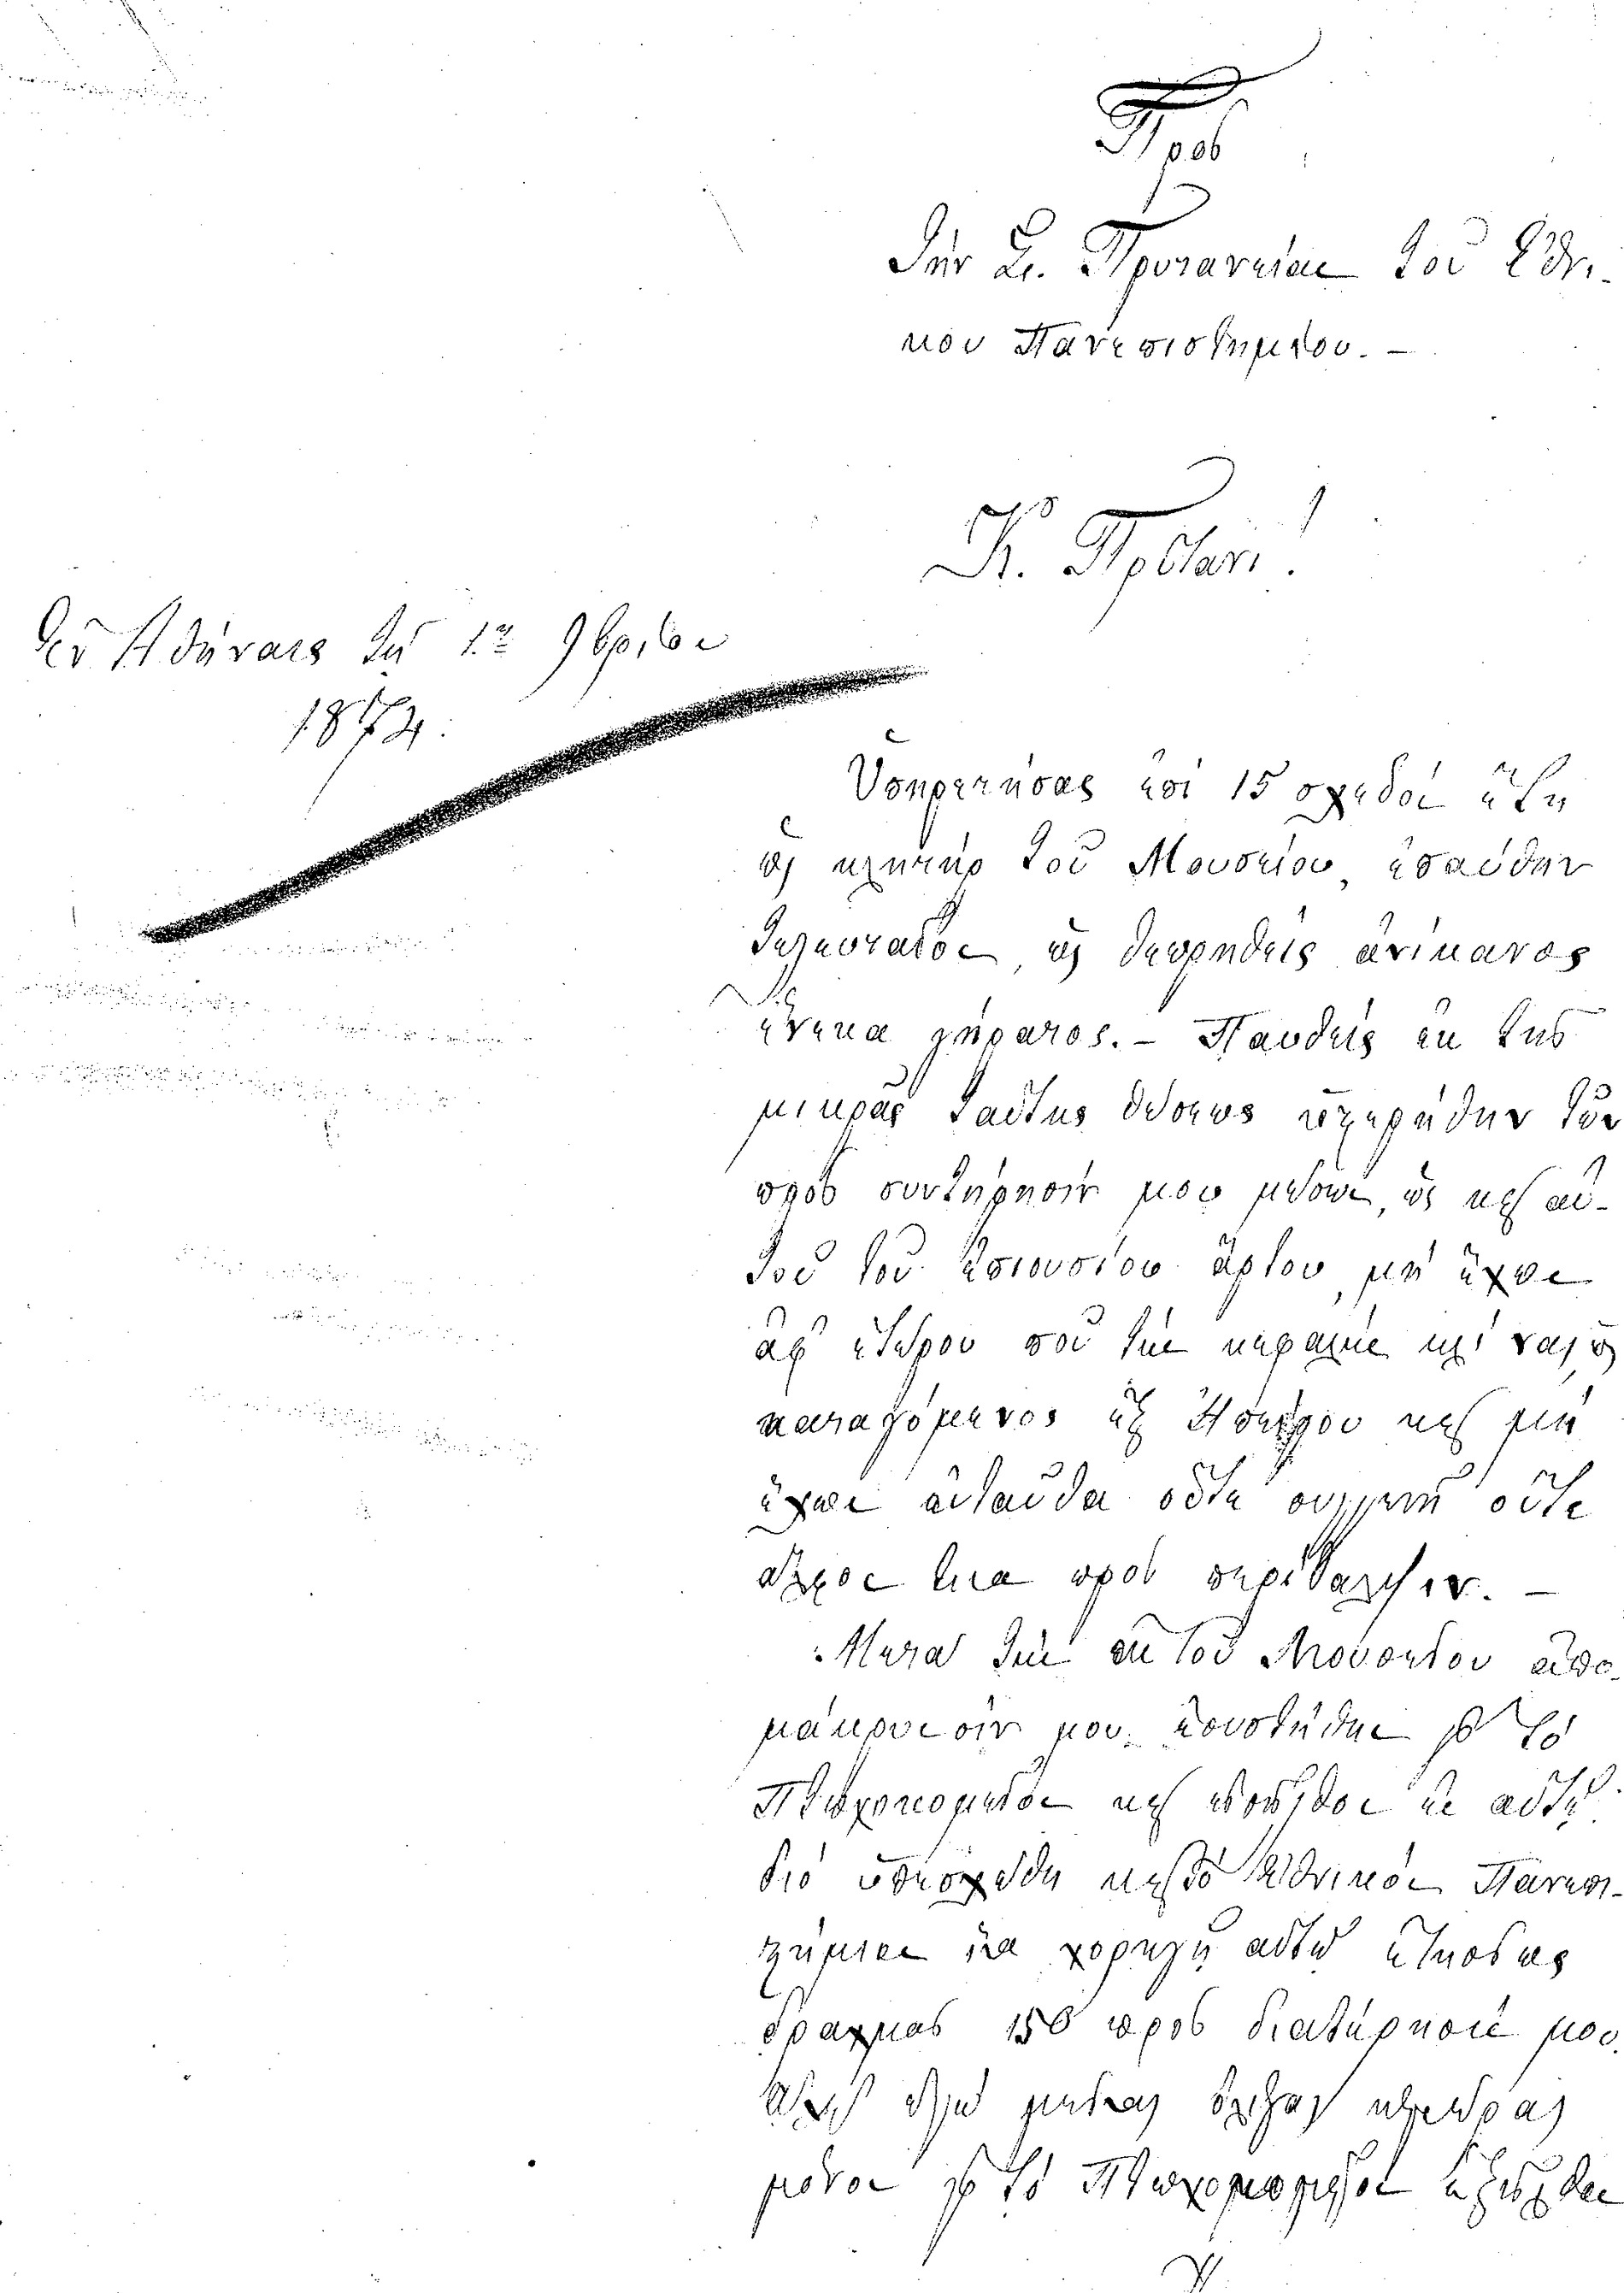 Πρὸς
Τὴν Σ. Πρυτανείαν τοῦ Ἐθνι-
κοῦ Πανεπιστημίου. –
Κ. Πρύτανι!
Ἐν Ἀθήναις τῇ 12 9βρίου
1874.
Ὑπηρετήσας ἐπὶ 15 σχεδὸν ἔτη
ὡς κλητὴρ τοῦ Μουσείου, ἐπαύθην
τελευταῖον, ὡς θεωρηθεὶς ἀνίκανος
ἕνεκα γήρατος. – Παυθεὶς ἐκ τῆς
μικρᾶς ταύτης θέσεως ὑστερήθην τῶν
πρὸς συντήρησίν μου μέσων, ὡς καὶ αὐ-
τοῦ τοῦ ἐπιουσίου ἄρτου, μὴ ἔχων
ἀφ' ἑτέρου ποῦ τὴν κεφαλὴν
καταγόμενος ἐξ Ἠπείρου καὶ μὴ
ἔχων ἐνταῦθα οὔτε συγγενῆ οὔτε
ἄλλον τινα πρὸς περίθαλψιν. –
Μετὰ τὴν ἐκ τοῦ Μουσείου ἀπο-
μάκρυνσίν μου, ἐσυστήθην εἰς τὸ
Πτωχοκομεῖον καὶ εἰσῆλθον ἐν αὐτῷ
διὸ ὑπεσχέθη καὶ τὸ Ἐθνικὸν Πανεπι-
στήμιον ἵνα χορηγῇ αὐτῷ ἐτησίως
δραχμὰς 150 πρὸς διατήρησίν μου.
Ἀλλ' ἐγὼ μείνας ὀλίγας ἡμέρας
μόνον εἰς τὸ Πτωχοκομεῖον ἐξῆλθον